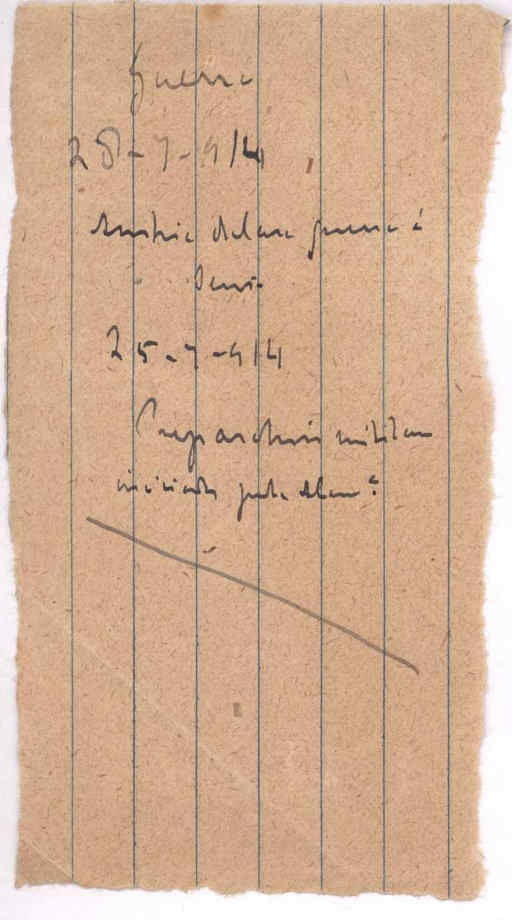 Guerra
28-7-914
Austria declara guerra á
Servia
25-7-914
Preparativos militares
iniciados